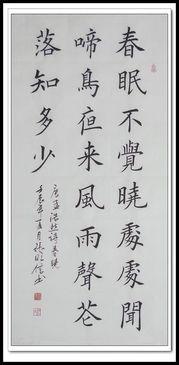 春眠不覺曉處處聞
啼鳥夜来風雨聲花
落知多少
唐孟浩然詩春曉